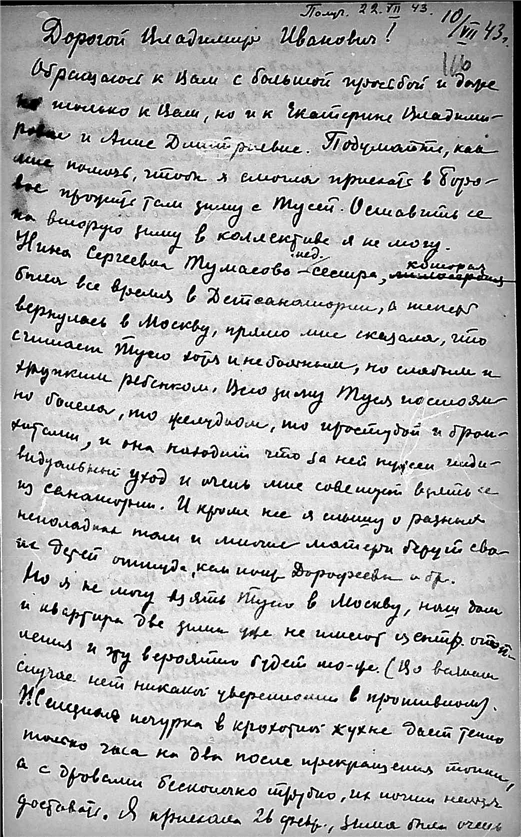 Получ. 22 VII 43.
10/VII 43 г.
Дорогой Владимир Иванович!
Обращаюсь к Вам с большой просьбой и даже
не только к Вам, но и к Екатерине Владими-
ровне и Анне Дмитриевне. Подумайте, как
мне помочь, чтобы я смогла приехать в Боро-
вое прожить там зиму с Тусей. Оставить её
на вторую зиму в коллективе я не могу.
Нина Сергеевна Тумасова - мед. сестра, которая
была все время в Детсанатории, а теперь
вернулась в Москву, прямо мне сказала, что
считает Тусю хотя и не больным, но слабым и
хрупким ребенком. Всю зиму Туся постоян-
но болела, то желудком, то простудой и брон-
хитами, и она находит что за ней нужен инди-
видуальный уход и очень мне советует взять её
из санатория. И кроме нее я слышу о разных
неполадках там и многие матери берут сво-
их детей оттуда, как напр. Дорофеева и др.
Но я не могу взять Тусю в Москву, наш дом
и квартира две зимы уже не имеют центр. отоп-
ления и эту вероятно будет то-же. (Во всяком
случае нет никакой уверенности в противном).
Железная печурка в крохотной кухне дает тепло
только часа на два после прекращения топки,
а с дровами бесконечно трудно, их почти нельзя
доставать. Я приехала 26 февр., зима была очень